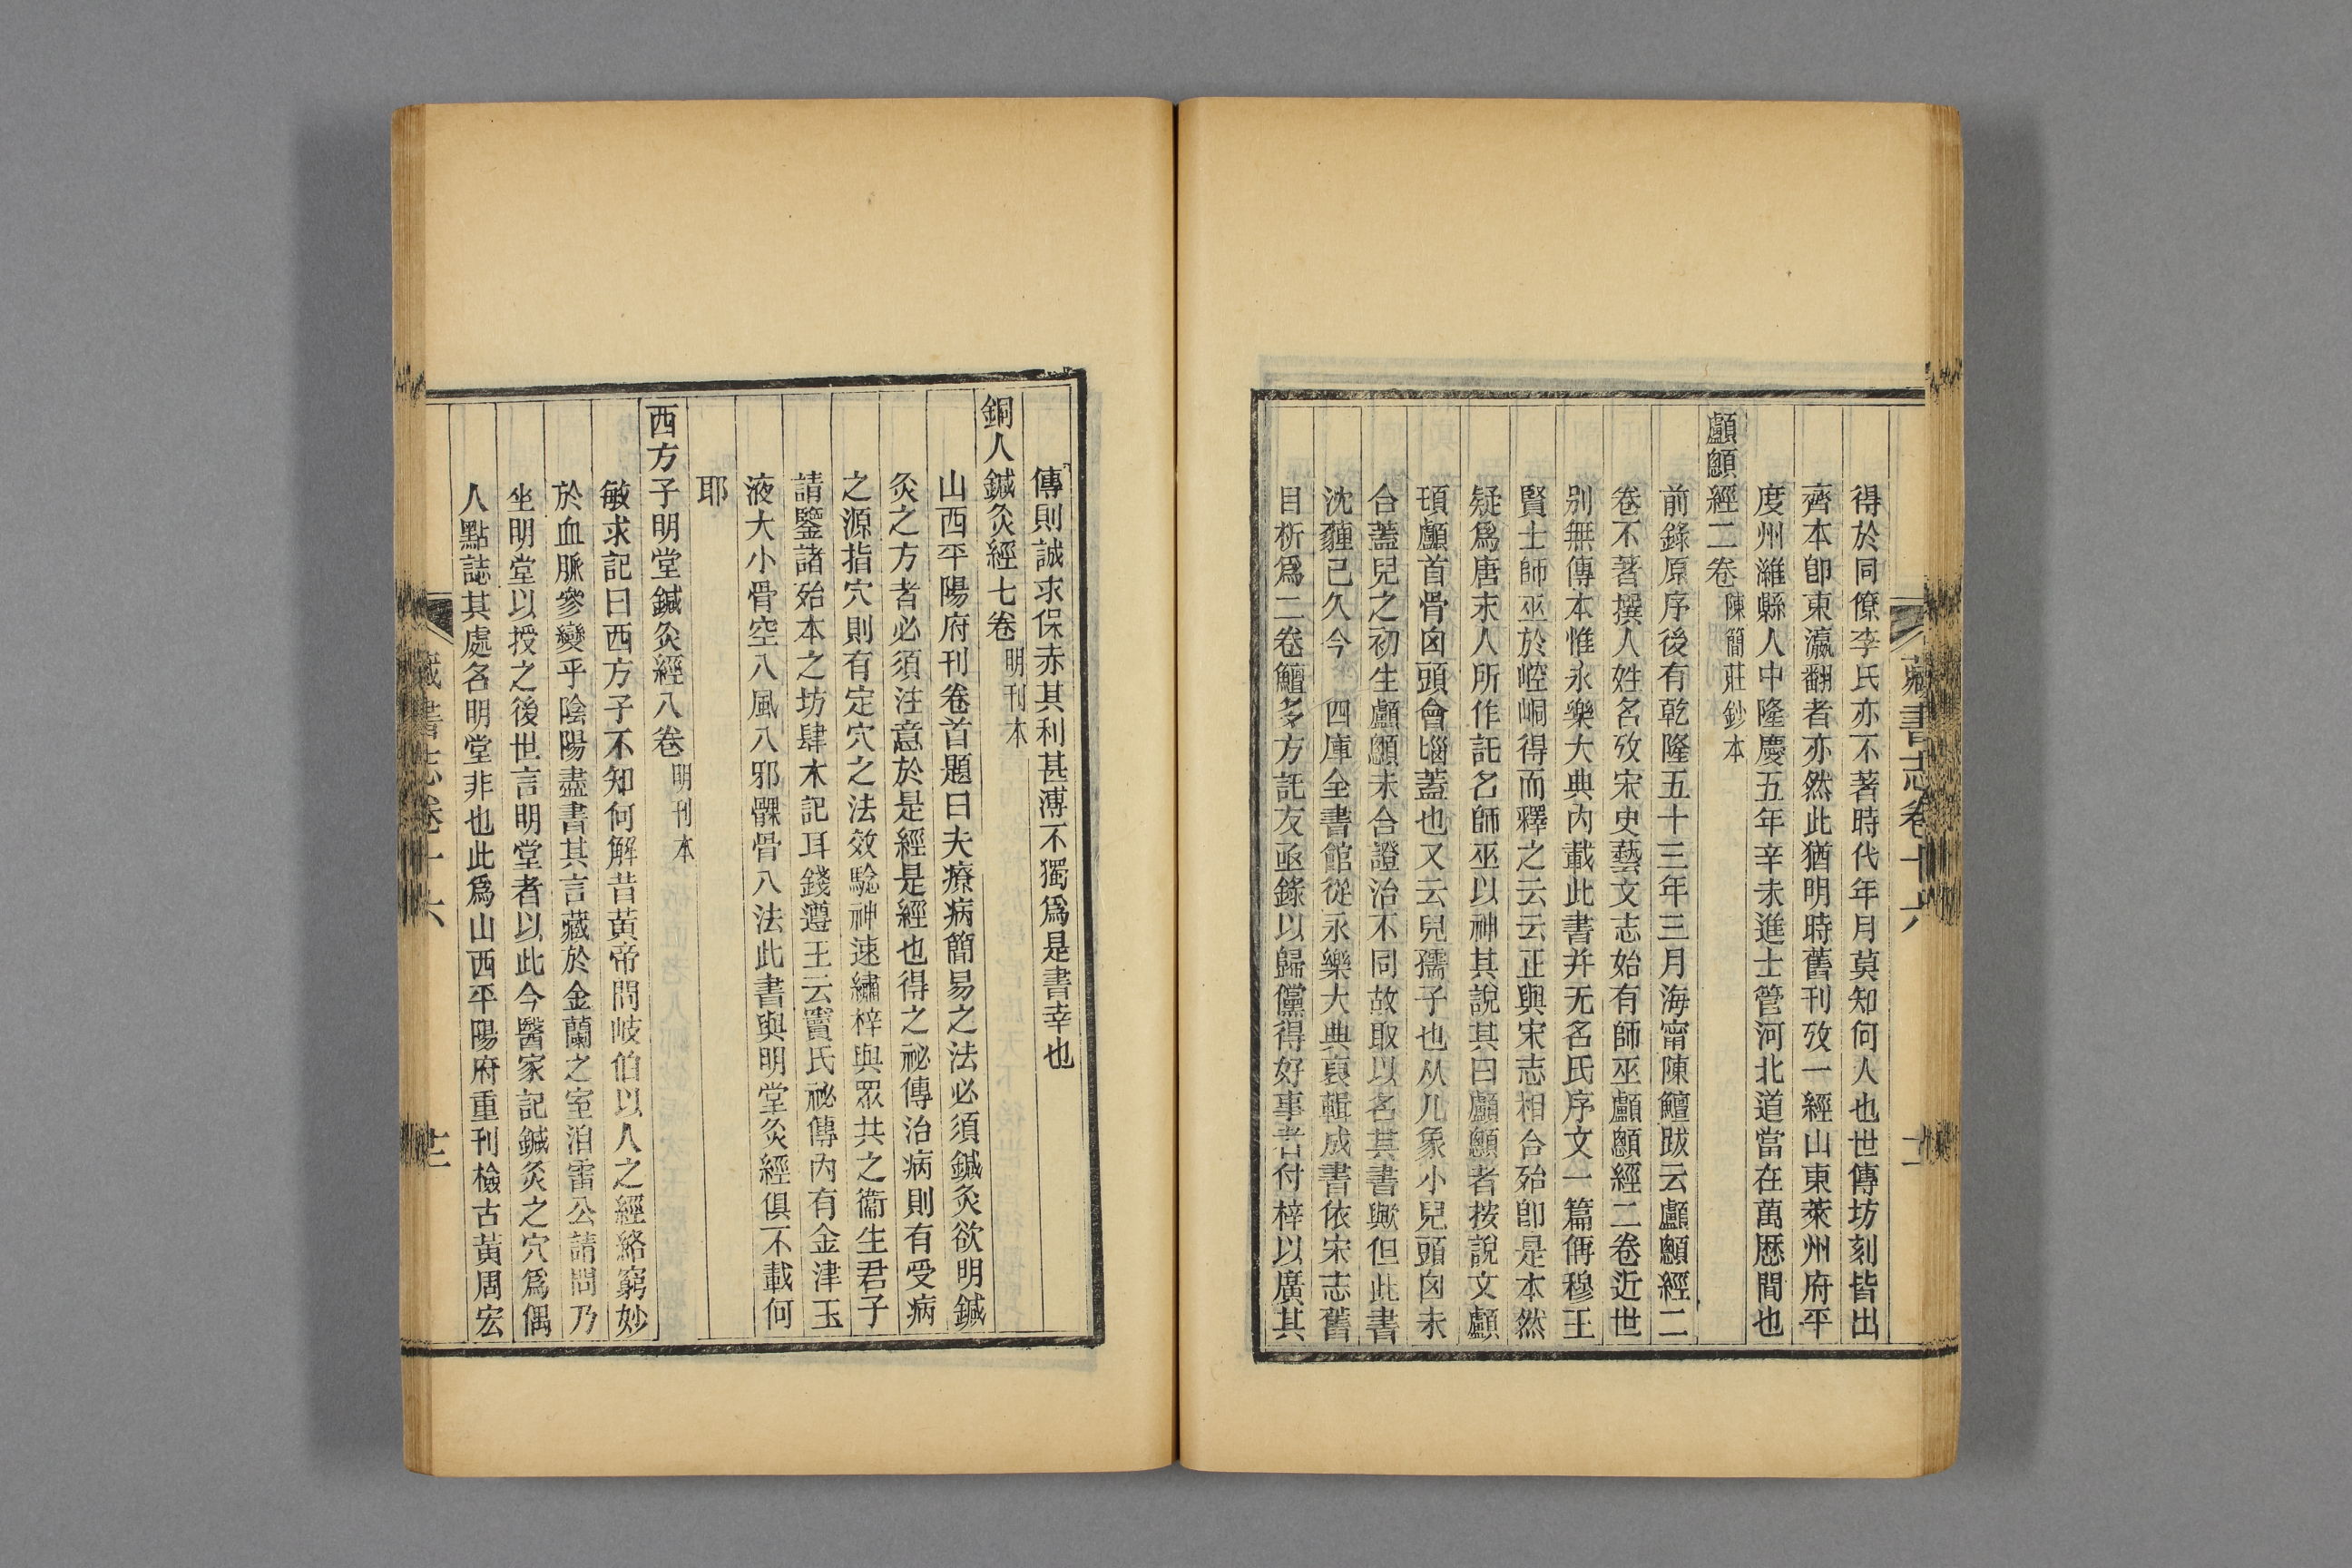 得於同僚李氏亦不著時代年月莫知何人也世傳坊刻皆出
齊本卽東瀛翻者亦然此猶明時舊刊攷一經山東萊州府平
度州濰縣人中隆慶五年辛未進士管河北道當在萬厯間也
顱顖經二卷 陳簡莊鈔本
前錄原序後有乾隆五十三年三月海甯陳鱣跋云顱顖經二
卷不著撰人姓名攷宋史藝文志始有師巫顱顖經二卷近世
别無傳本惟永樂大典內載此書并无名氏序文一篇偁穆王
賢士師巫於崆峒得而釋之云云正與宋志相合殆卽是本然
疑爲唐末人所作託名師巫以神其說其曰顱顖者按說文顱
頊顱首骨囟頭會匘蓋也又云兒孺子也从儿象小兒頭囟未
合蓋兒之初生顱顖未合證治不同故取以名其書歟但此書
沈薶已久今 四庫全書館從永樂大典裒輯成書依宋志舊
目析爲二卷鱣多方託友亟錄以歸儻得好事者付梓以廣其
藏書志卷十六
傳則誠求保赤其利甚溥不獨爲是書幸也
銅人鍼灸經七卷 明刊本
山西平陽府刊卷首題曰夫療病簡易之法必須鍼灸欲明鍼
灸之方者必須注意於是經是經也得之祕傳治病則有受病
之源指穴則有定穴之法效驗神速繡梓與眾共之衞生君子
請鑒諸殆本之坊肆木記耳錢遵王云竇氏祕傳內有金津玉
液大小骨空八風八邪髁骨八法此書與明堂灸經俱不載何
耶
西方子明堂鍼灸經八卷 明刊本
敏求記曰西方子不知何解昔黃帝問岐伯以人之經絡窮妙
於血脈參變乎陰陽盡書其言藏於金蘭之室洎雷公請問乃
坐明堂以授之後世言明堂者以此今醫家記鍼灸之穴爲偶
人點誌其處名明堂非也此爲山西平陽府重刊檢古黃周宏
藏書志卷十六